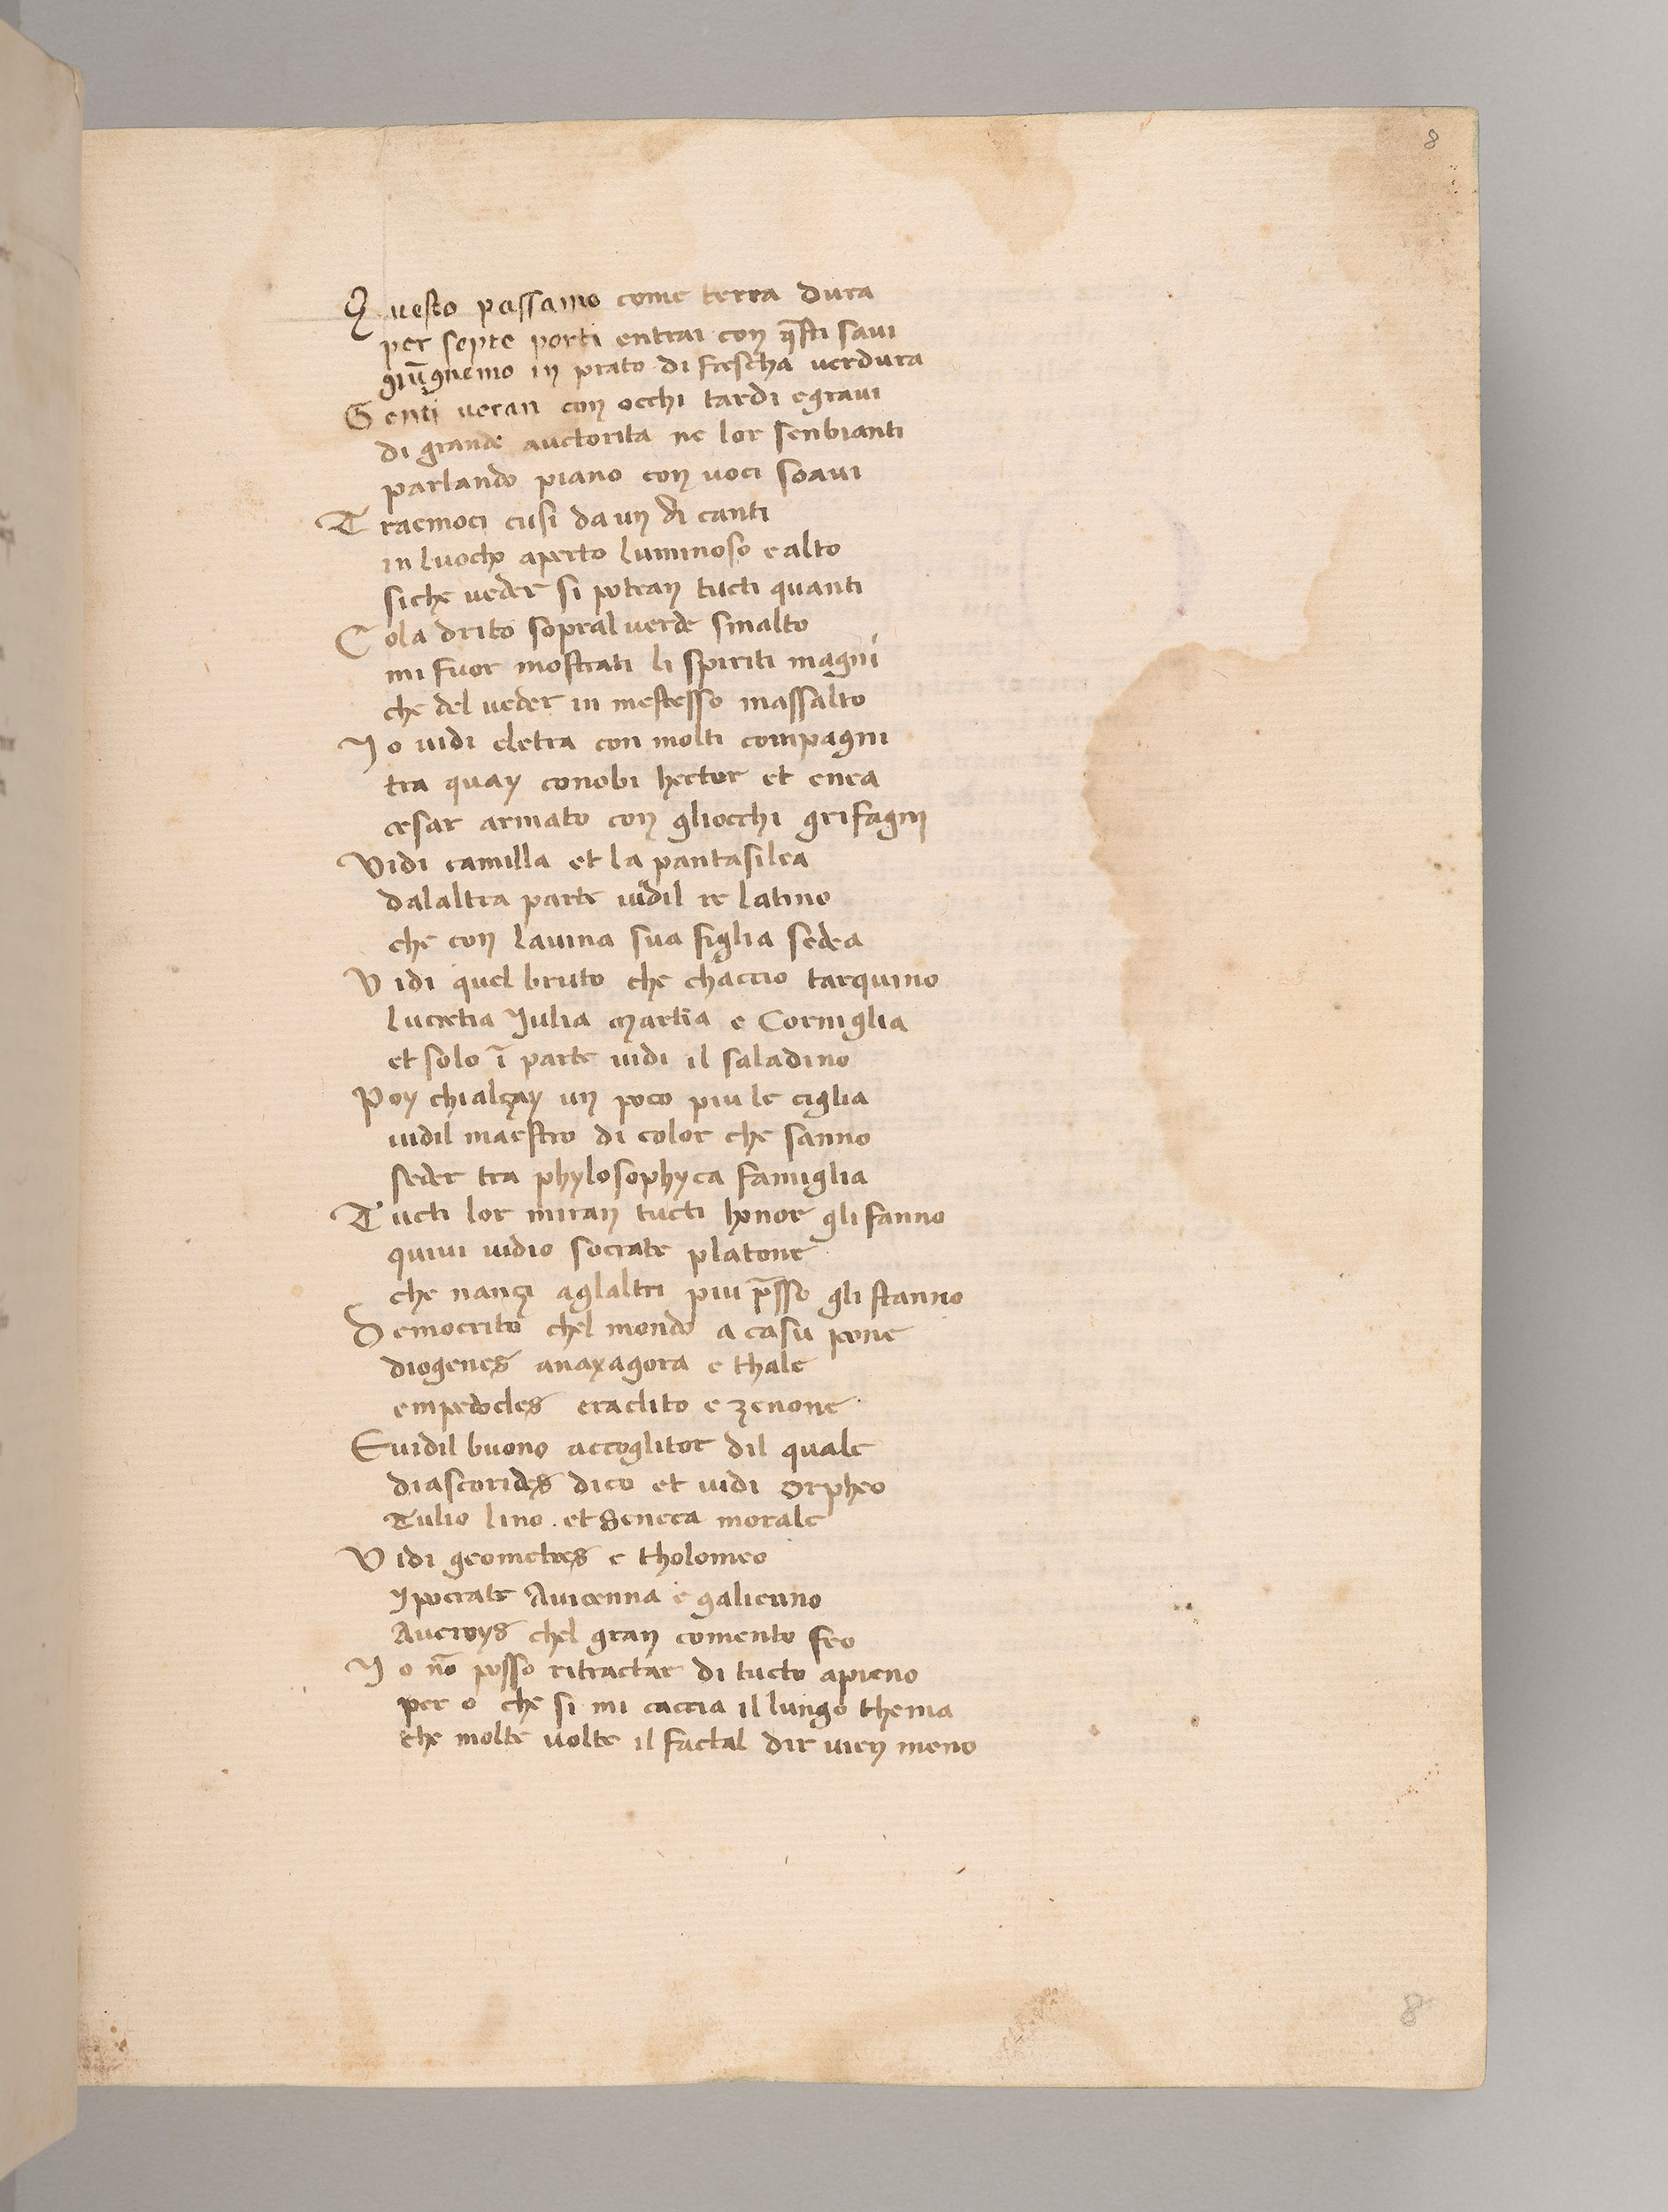 8
Questo passamo come terra dura
per septe porti entrai con q̄sti saui
giūgnemo in prato di frescha uerdura
Genti ueran con occhi tardi egraui
di grande auctorita ne lor senbianti
parlando piano con uoci soaui
Traemoci cusi da un di canti
in luocho aperto luminoso ealto
siche ueder si potean tucti quanti
Cola drito sopral uerde smalto
mi fuor mostrati li spiriti magni
che del ueder in mestesso massalto
Jo uidi eletra con molti compagni
tra quay conobi hector et enea
cesar armato con gliocchi grifagni
Vidi camilla et la pantasilea
dalaltra parte uidil re latino
che con lauina sua figlia sedea
Vidi quel bruto che chaccio tarquino
lucretia Julia martia e Corniglia
et solo ī parte uidi il saladino
Poy chialçay un poco piu le ciglia
uidil maestro di color che sanno
seder tra phylosophyca famiglia
Tucti lor miran tucti honor gli fanno
quiui uidio socrate platone
che nançi aglaltri piu p̄sso gli stanno
Democrito chel mondo a casu pone
diogenes anaxagora e thale
empedocles eraclito e zenone
Euidil buono accoglitor dil quale
diascorides dico et uidi orpheo
Tulio lino . et Seneca morale
Vidi geometres e tholomeo
ypocrate Auicenna e galieno
Aueroys chel gran comento feo
Jo nō posso ritractar di tucto apieno
per o che si mi caccia il lungo thema
che molte uolte il factal dir uien meno
8